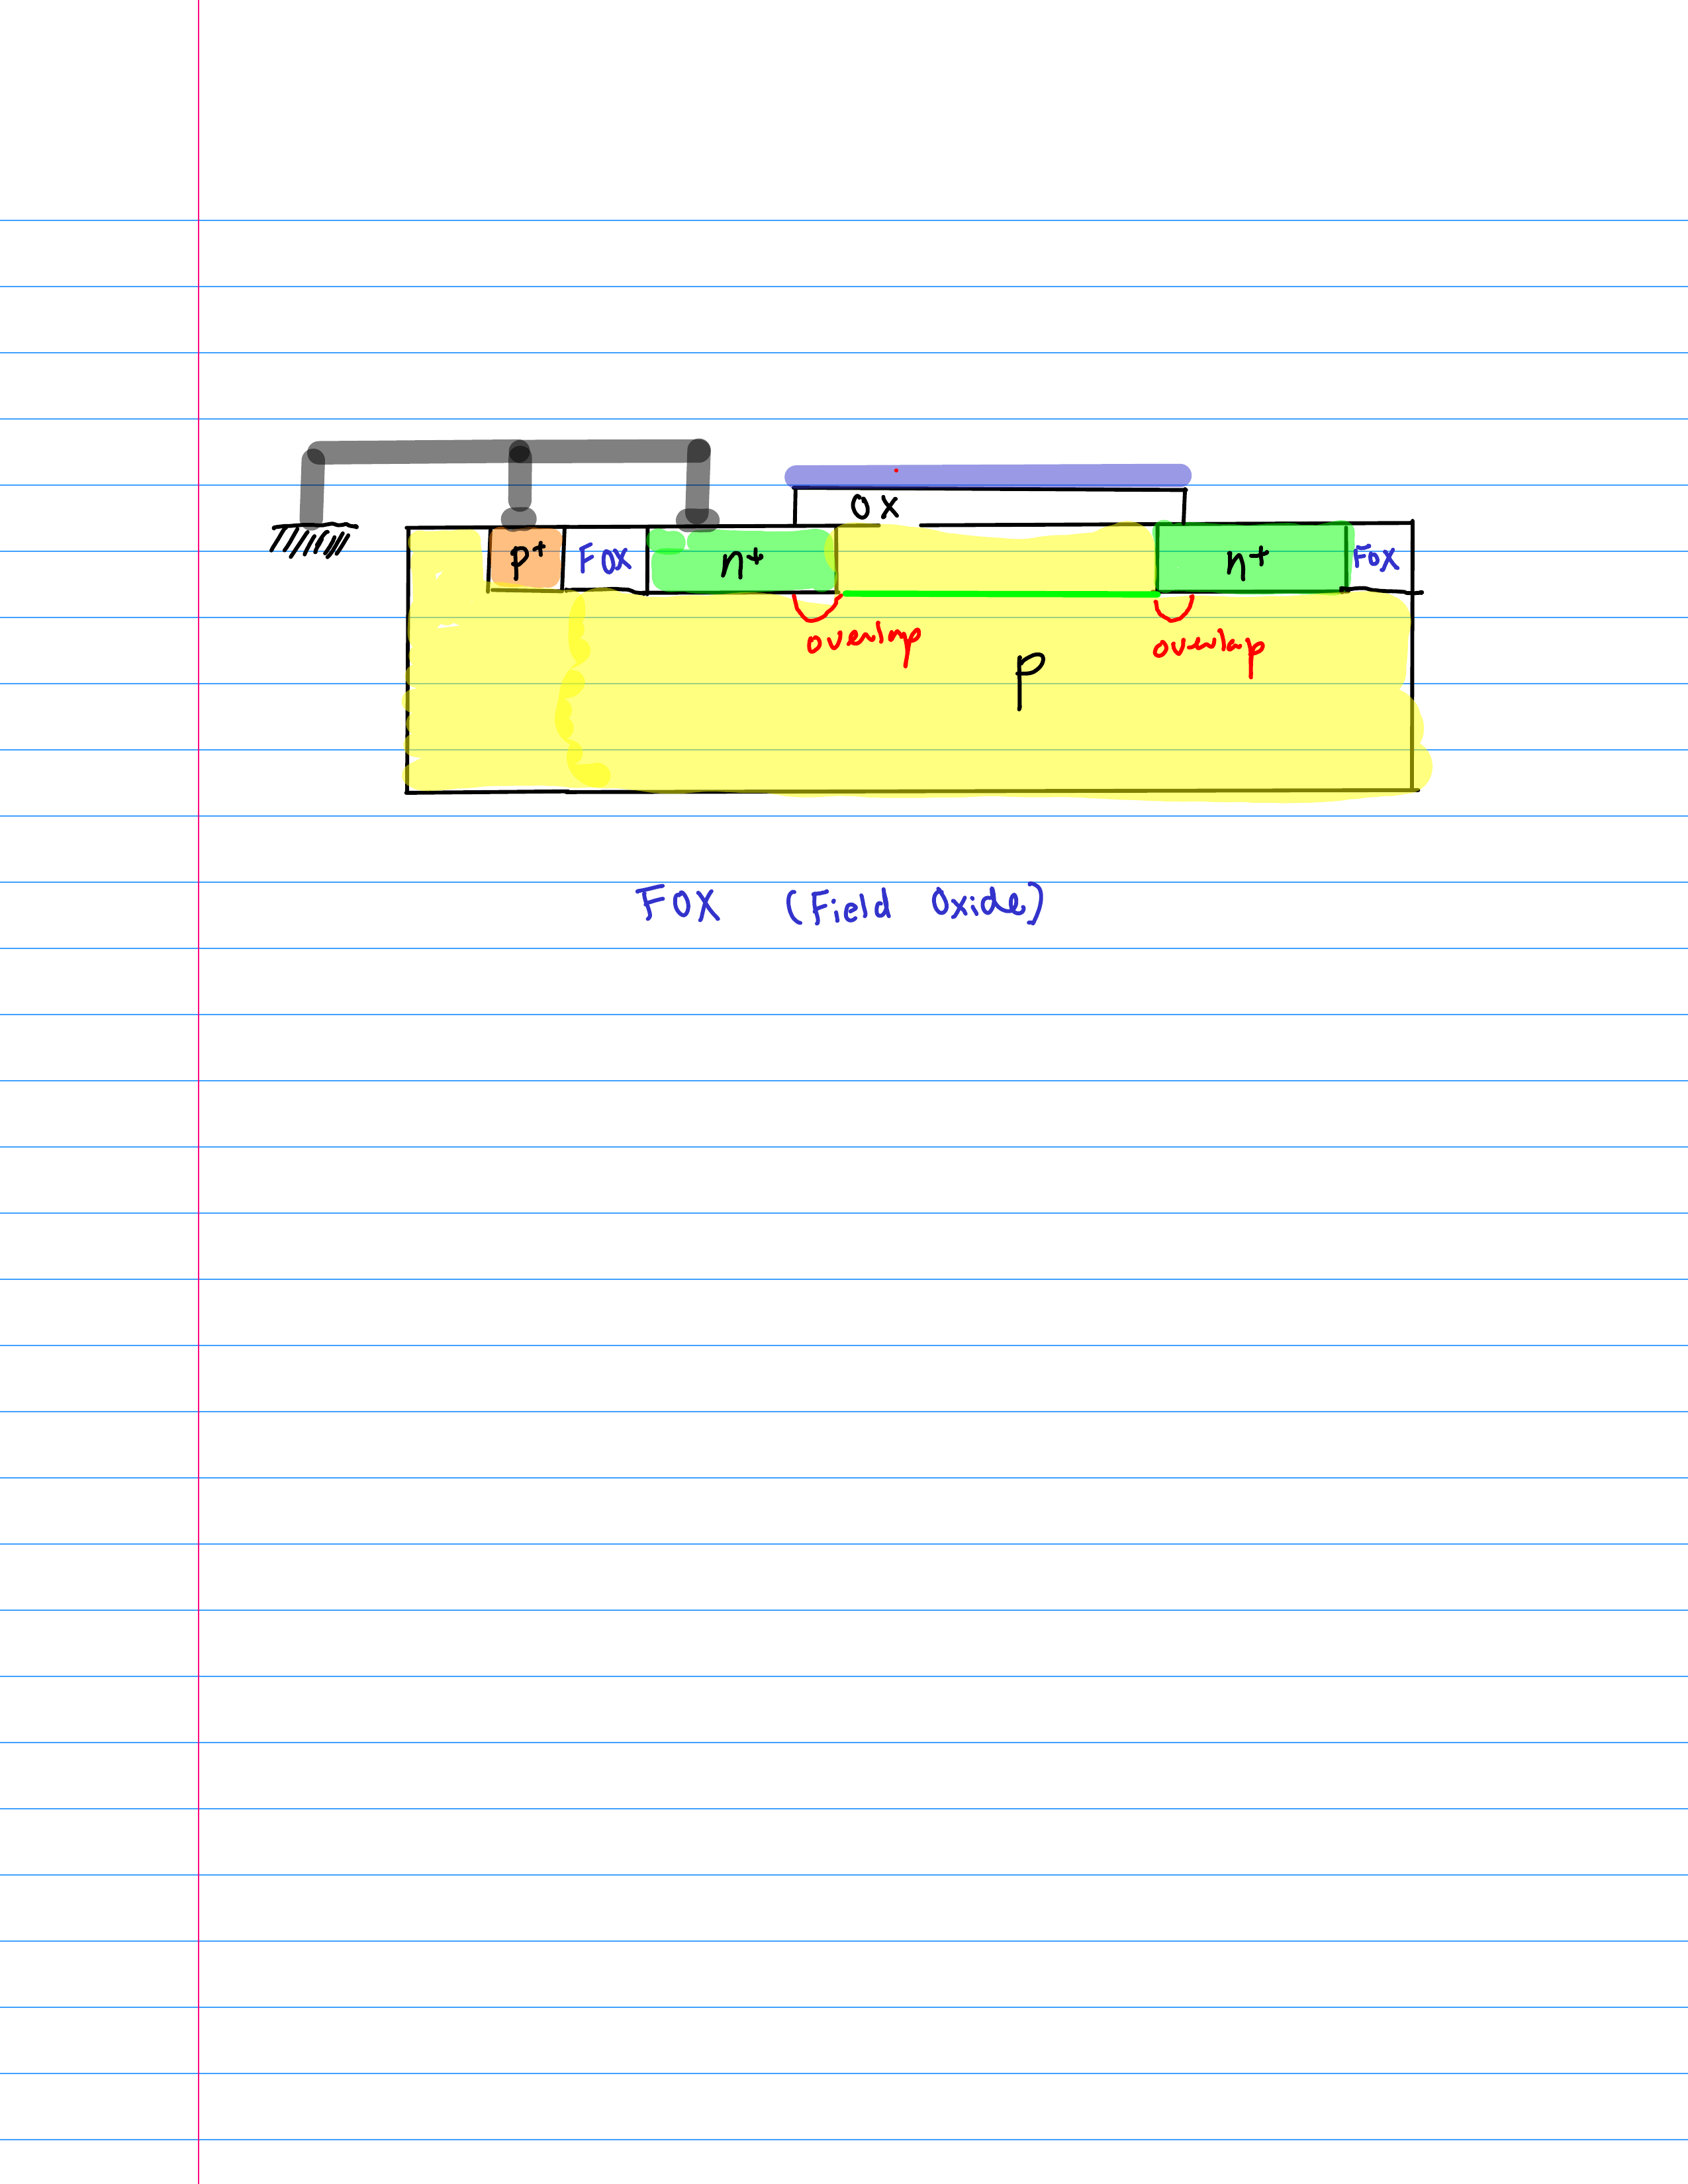 OX
p+ FOX n+ n+ FOX
overlap overlap
P
FOX (Field Oxide)